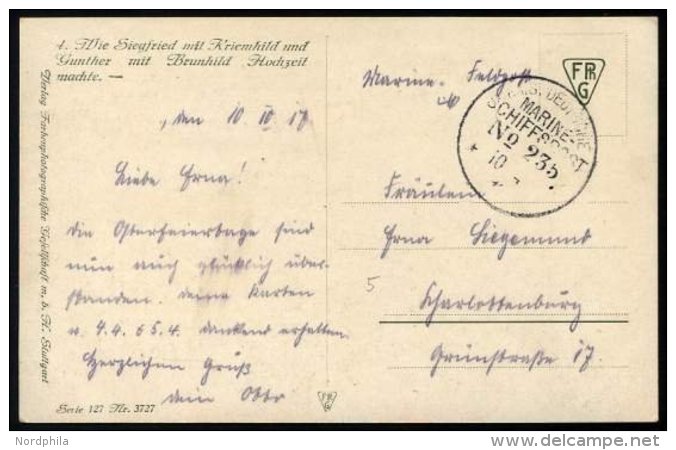 4. Wie Siegfried mit Kriemhild und
Gunther mit Brunhild Hochzeit
machte. —
Verlag Farbenphotographische Gesellschaft m. b. H. Stuttgart
, den 10 IV 17
Liebe Erna!
Die Osterfeiertage sind
nun auch glücklich über-
standen. Deine Karten
v. 4.4. & 5.4. dankend erhalten.
Herzlichen Gruß
dein Otto
Serie 127 Nr. 3727
Marine. Feldpost
FPh
G
KAIS. DEUTSCHE
MARINE-
SCHIFFSPOST
No 235
10
Fräulein
Erna Siegemund
5
Charlottenburg
Grünstraße 17
FPh
G
Nordphila
www.delcampe.net